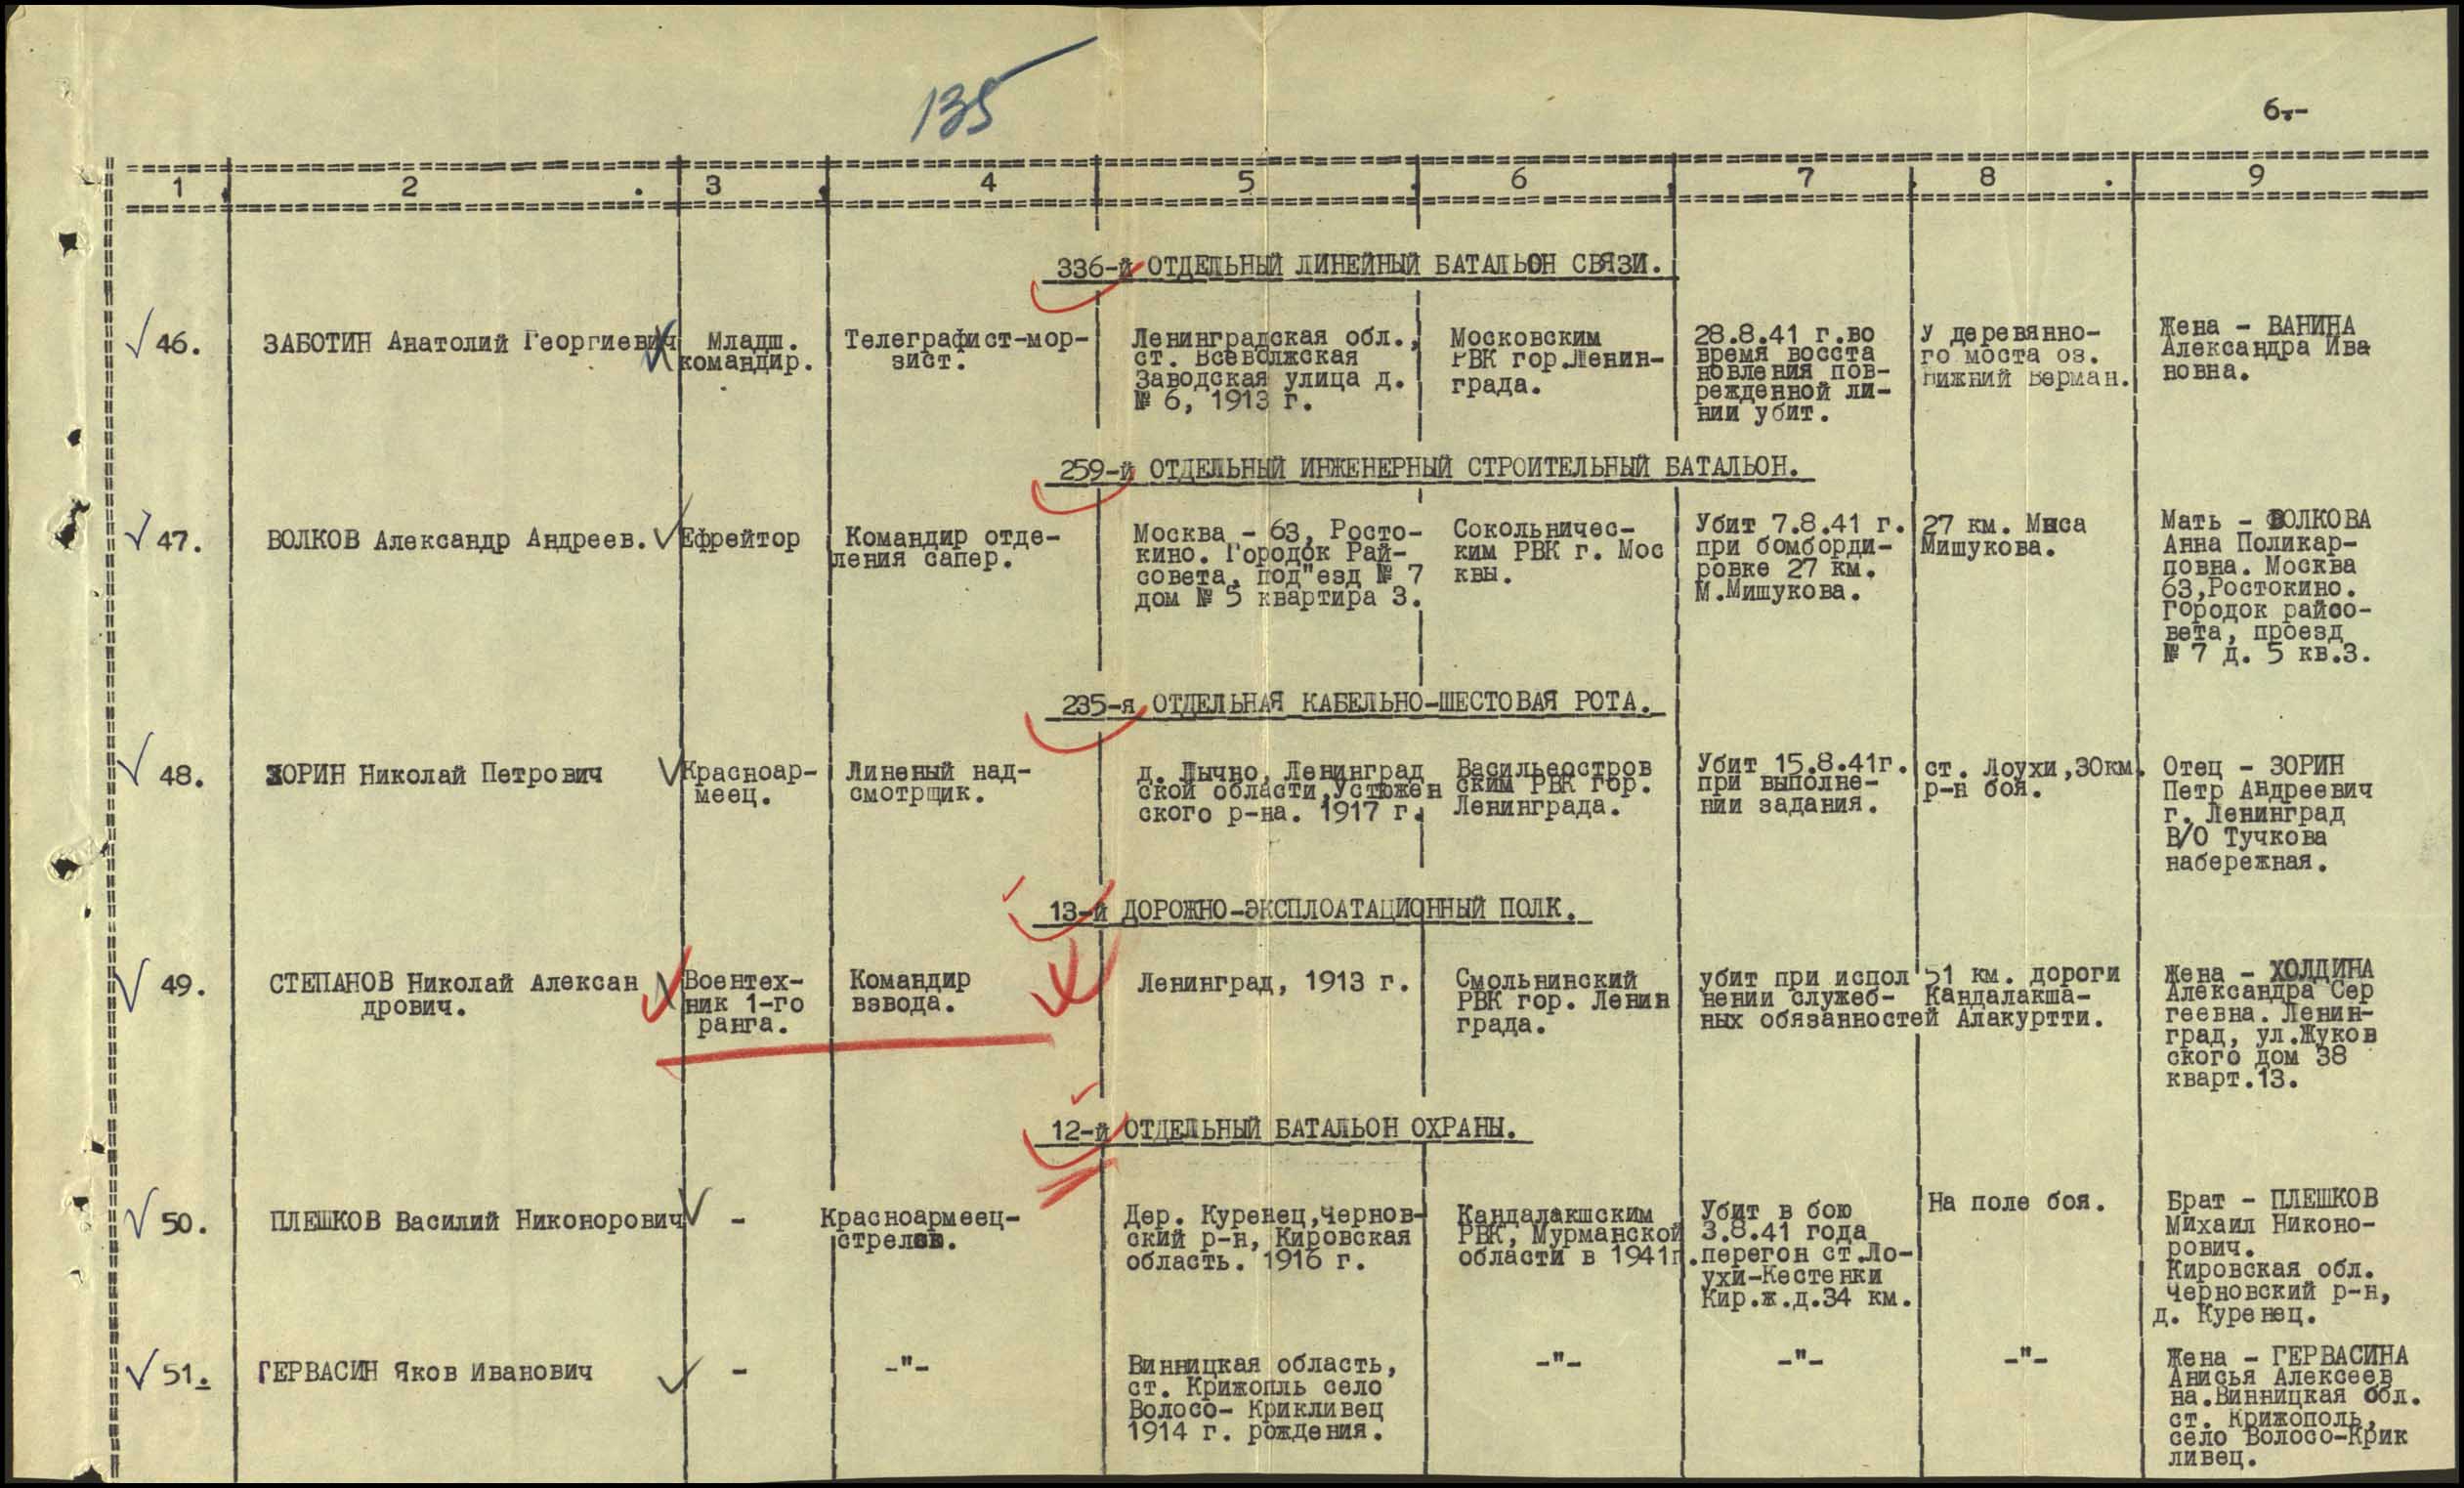 135
6.-
1 2 3 4 5 6 7 8 9
336-й ОТДЕЛЬНЫЙ ЛИНЕЙНЫЙ БАТАЛЬОН СВЯЗИ.
46.
ЗАБОТИН Анатолий Георгиевич
Младш.
командир.
Телеграфист-мор-
зист.
Ленинградская обл.,
ст. Всеволжская
Заводская улица д.
№ 6, 1913 г.
Московским
РВК гор.Ленин-
града.
28.8.41 г.во
время восста
новления пов-
режденной ли-
нии убит.
У деревянно-
го моста оз.
Нижний Верман.
Жена - ВАНИНА
Александра Ива
новна.
259-й ОТДЕЛЬНЫЙ ИНЖЕНЕРНЫЙ СТРОИТЕЛЬНЫЙ БАТАЛЬОН.
47.
ВОЛКОВ Александр Андреев.
Ефрейтор
Командир отде-
ления сапер.
Москва - 63, Росто-
кино. Городок Рай-
совета, под"езд № 7
дом № 5 квартира 3.
Сокольничес-
ким РВК г. Мос
квы.
Убит 7.8.41 г.
при бомборди-
ровке 27 км.
М.Мишукова.
27 км. Мыса
Мишукова.
Мать - ВОЛКОВА
Анна Поликар-
повна. Москва
63,Ростокино.
Городок райсо-
вета, проезд
№ 7 д. 5 кв.3.
235-я ОТДЕЛЬНАЯ КАБЕЛЬНО-ШЕСТОВАЯ РОТА.
48.
ЗОРИН Николай Петрович
Красноар-
меец.
Линеный над-
смотрщик.
д. Лычно, Ленинград
ской области,Устюжен
ского р-на. 1917 г.
Васильеостров
ским РВК гор.
Ленинграда.
Убит 15.8.41г.
при выполне-
нии задания.
ст. Лоухи,30км.
р-н боя.
Отец - ЗОРИН
Петр Андреевич
г. Ленинград
В/О Тучкова
набережная.
13-й ДОРОЖНО-ЭКСПЛОАТАЦИОННЫЙ ПОЛК.
49.
СТЕПАНОВ Николай Алексан
дрович.
Воентех-
ник 1-го
ранга.
Командир
взвода.
Ленинград, 1913 г.
Смольнинский
РВК гор. Ленин
града.
убит при испол
нении служеб-
ных обязанностей
51 км. дороги
Кандалакша-
Алакуртти.
Жена - ХОЛДИНА
Александра Сер
геевна. Ленин-
град, ул.Жуков
ского дом 38
кварт.13.
12-й ОТДЕЛЬНЫЙ БАТАЛЬОН ОХРАНЫ.
50.
ПЛЕШКОВ Василий Никонорович
-
Красноармеец-
стрелок.
Дер. Куренец,Чернов-
ский р-н, Кировская
область. 1916 г.
Кандалакшским
РВК, Мурманской
области в 1941г.
Убит в бою
3.8.41 года
перегон ст.Ло-
ухи-Кестенки
Кир.ж.д.34 км.
На поле боя.
Брат - ПЛЕШКОВ
Михаил Никоно-
рович.
Кировская обл.
Черновский р-н,
д. Куренец.
51.
ГЕРВАСИН Яков Иванович
-
-"-
Винницкая область,
ст. Крижопль село
Волосо- Крикливец
1914 г. рождения.
-"-
-"-
-"-
Жена - ГЕРВАСИНА
Анисья Алексеев
на.Винницкая обл.
ст. Крижополь,
село Волосо-Крик
ливец.